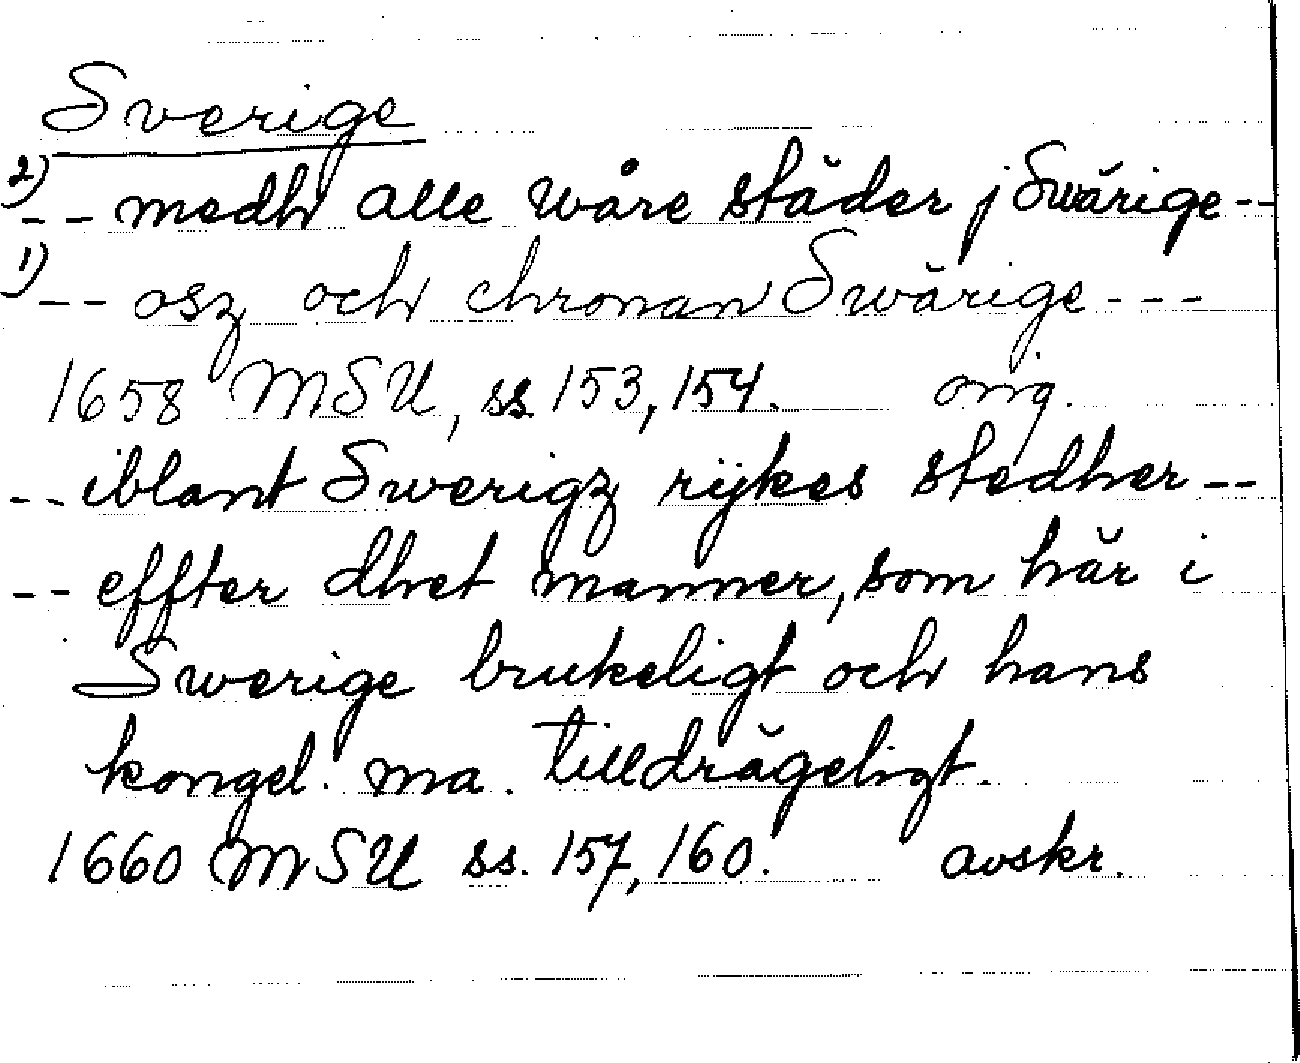 Sverige
2) -- medh alle wåre städer j Swärige --
1) -- osz och chronan Swärige ---
1658 MSU, ss. 153, 154. orig.
-- iblant Swerigz rijkes stedher --
-- effter dhet manner, som här i
Swerige brukeligt och hans
kongel. ma. tilldrägeligt.
1660 MSU ss. 157, 160. avskr.